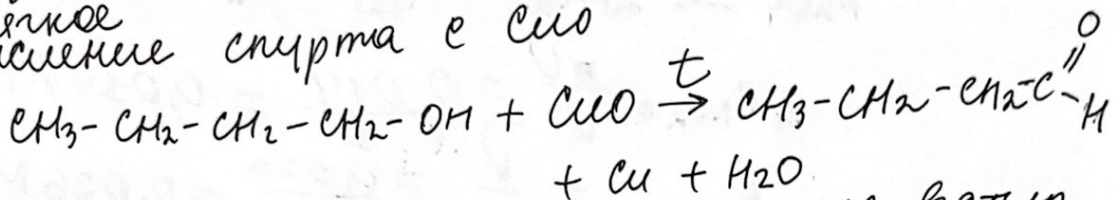 ягкое
исление спирта с CuO
O
CH3-CH2-CH2-CH2-OH + CuO →t CH3-CH2-CH2-C=O-H
+ Cu + H2O